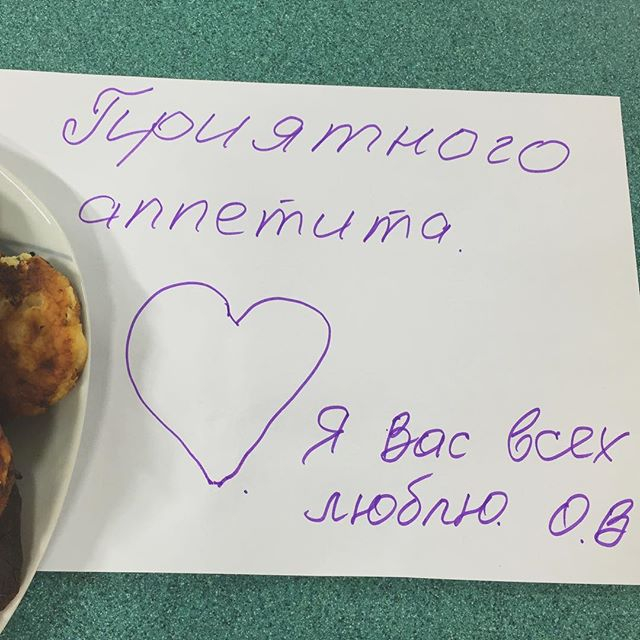 Приятного
аппетита.
Я вас всех
люблю. О.В